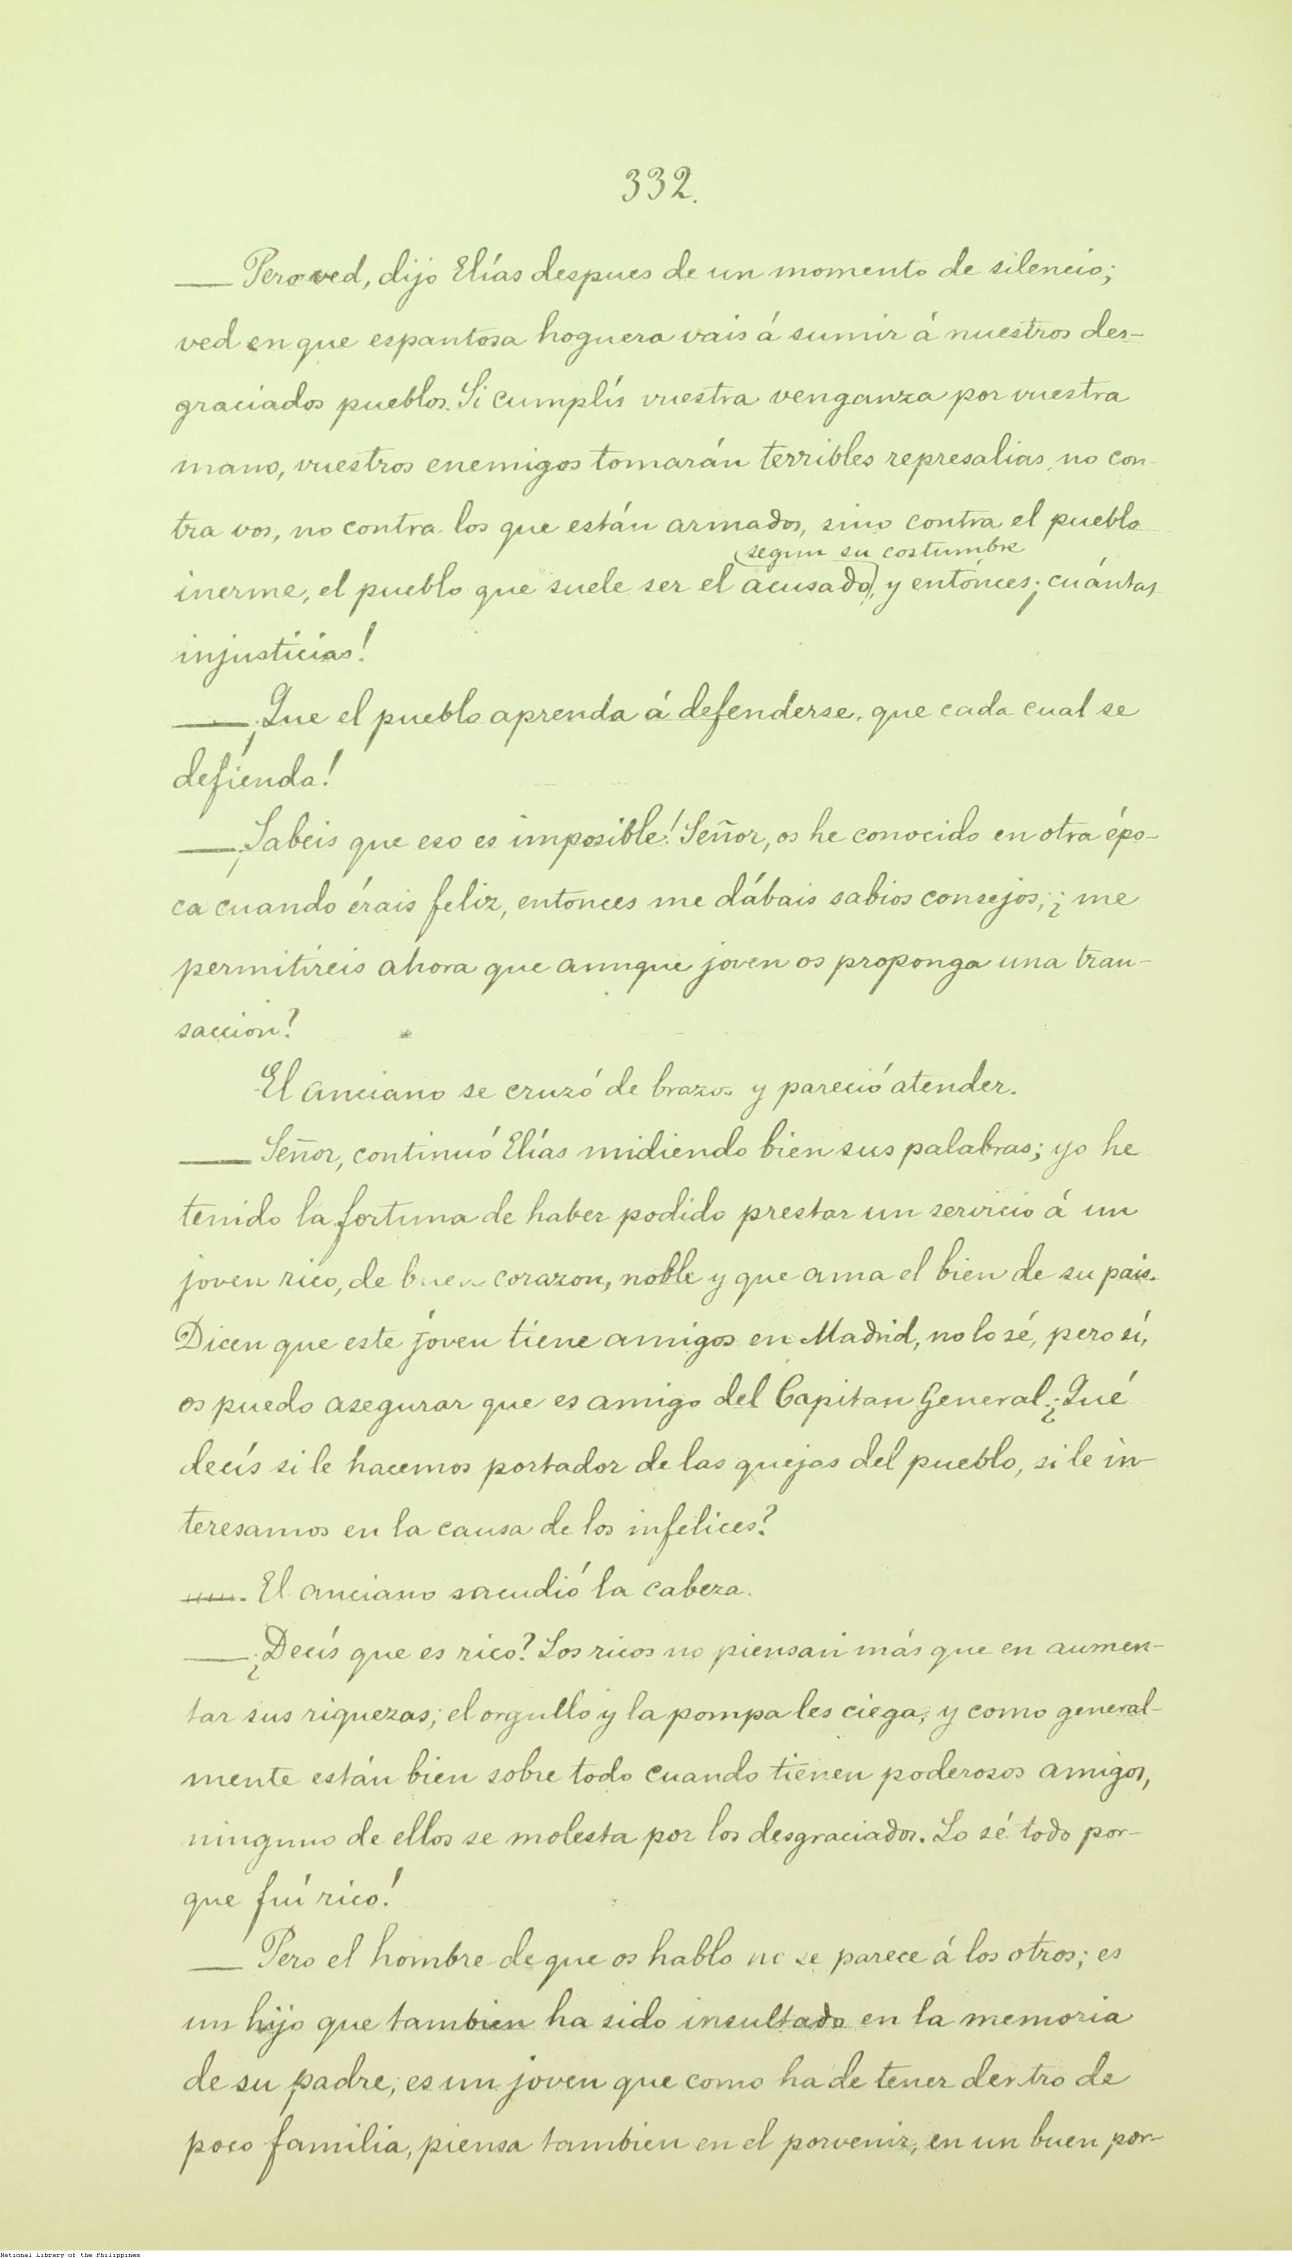 332.
— Pero ved, dijo Elías despues de un momento de silencio;
ved en que espantosa hoguera vais á sumir á nuestros des-
graciados pueblos. Si cumplís vuestra venganza por vuestra
mano, vuestros enemigos tomarán terribles represalias, no con-
tra vos, no contra los que están armados, sino contra el pueblo
(segun su costumbre
inerme, el pueblo que suele ser el acusado), y entónces ¡cuántas
injusticias!
— ¡Que el pueblo aprenda á defenderse, que cada cual se
defienda!
— ¡Sabeis que eso es imposible! Señor, os he conocido en otra épo-
ca cuando érais feliz, entonces me dábais sabios consejos; ¿me
permitireis ahora que aunque joven os proponga una tran-
saccion?
El anciano se cruzó de brazos y pareció atender.
— Señor, continuó Elías midiendo bien sus palabras; yo he
tenido la fortuna de haber podido prestar un servicio á un
joven rico, de buen corazon, noble y que ama el bien de su pais.
Dicen que este jóven tiene amigos en Madrid, no lo sé, pero sí,
os puedo asegurar que es amigo del Capitan General. ¿Qué
decís si le hacemos portador de las quejas del pueblo, si le in-
teresamos en la causa de los infelices?
—. El anciano sacudió la cabeza.
— ¿Decís que es rico? Los ricos no piensan más que en aumen-
tar sus riquezas; el orgullo y la pompa les ciega, y como general-
mente están bien sobre todo cuando tienen poderosos amigos,
ninguno de ellos se molesta por los desgraciados. Lo sé todo por-
que fuí rico!
— Pero el hombre de que os hablo no se parece á los otros; es
un hijo que tambien ha sido insultado en la memoria
de su padre; es un joven que como ha de tener dentro de
poco familia, piensa tambien en el porvenir, en un buen por-
National Library of the Philippines